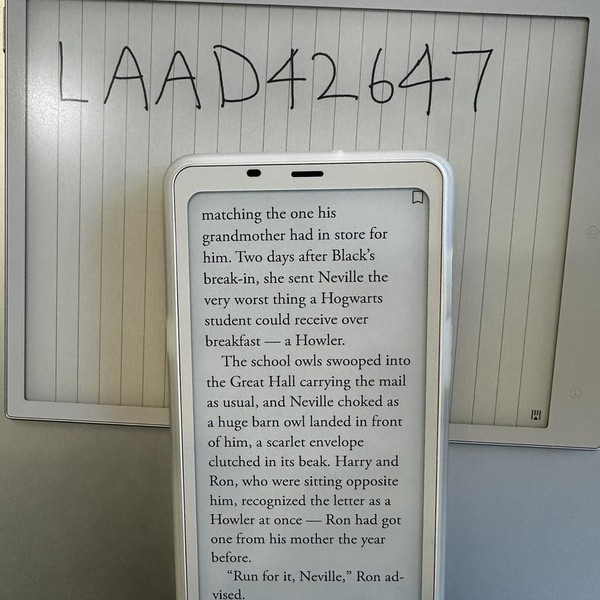 LAAD42647
matching the one his
grandmother had in store for
him. Two days after Black’s
break-in, she sent Neville the
very worst thing a Hogwarts
student could receive over
breakfast — a Howler.
The school owls swooped into
the Great Hall carrying the mail
as usual, and Neville choked as
a huge barn owl landed in front
of him, a scarlet envelope
clutched in its beak. Harry and
Ron, who were sitting opposite
him, recognized the letter as a
Howler at once — Ron had got
one from his mother the year
before.
“Run for it, Neville,” Ron ad-
vised.